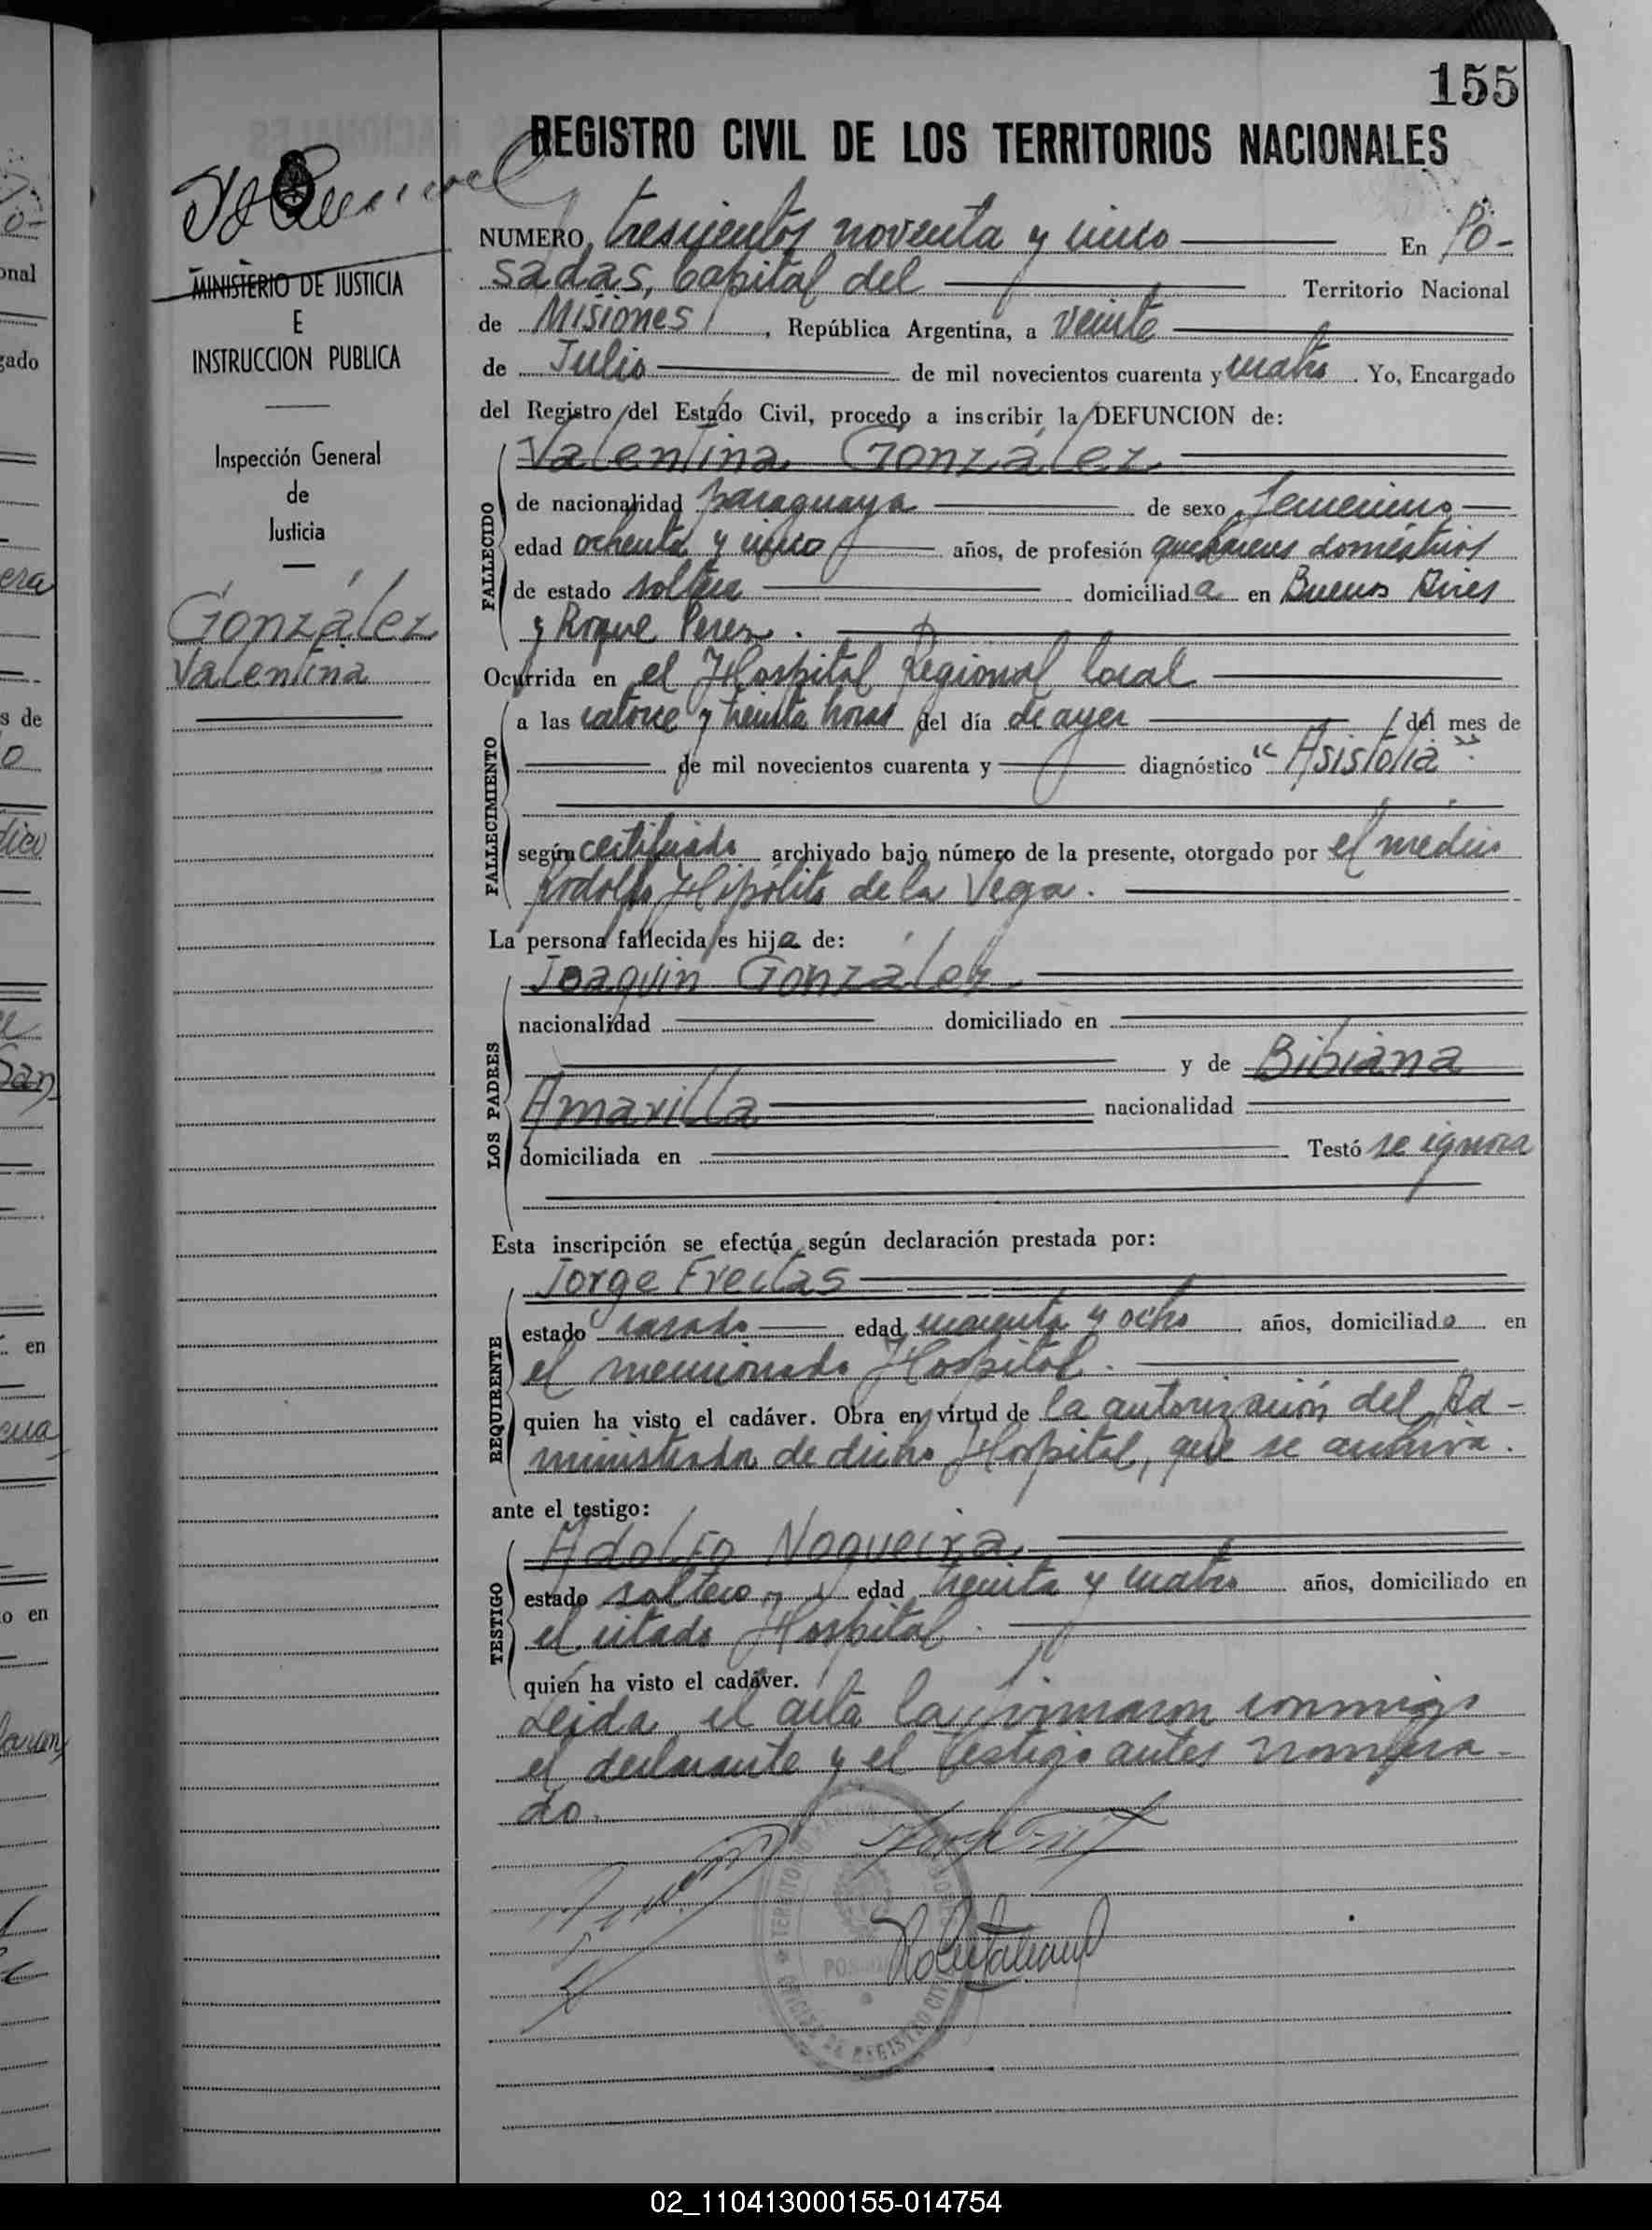 155
REGISTRO CIVIL DE LOS TERRITORIOS NACIONALES
MINISTERIO DE JUSTICIA
E
INSTRUCCION PUBLICA
Inspección General
de
Justicia
González
Valentina
NUMERO trescientos noventa y cinco En Po-
sadas, Capital del Territorio Nacional
de Misiones, República Argentina, a veinte
de Julio de mil novecientos cuarenta y cuatro. Yo, Encargado
del Registro del Estado Civil, procedo a inscribir la DEFUNCION de:
Valentina González
FALLECIDO
de nacionalidad paraguaya de sexo femenino
edad ochenta y cinco años, de profesión quehaceres domésticos
de estado soltera domiciliada en Buenos Aires
y Roque Perez.
Ocurrida en el Hospital Regional local
FALLECIMIENTO
a las catorce y treinta horas del día de ayer del mes de
de mil novecientos cuarenta y diagnóstico "Asistolia".
según certificado archivado bajo número de la presente, otorgado por el médico
Rodolfo Hipólito de la Vega.
La persona fallecida es hija de:
LOS PADRES
Joaquin González
nacionalidad domiciliado en
y de Bibiana
Amarilla nacionalidad
domiciliada en Testó se ignora
Esta inscripción se efectúa según declaración prestada por:
REQUIRENTE
Jorge Freitas
estado casado edad cuarenta y ocho años, domiciliado en
el mencionado Hospital.
quien ha visto el cadáver. Obra en virtud de la autorización del Ad-
ministrador de dicho Hospital, que se archiva.
ante el testigo:
TESTIGO
Adolfo Nogueira
estado soltero edad treinta y cuatro años, domiciliado en
el citado Hospital.
quien ha visto el cadáver.
Leida el acta la firmaron conmigo
el declarante y el testigo antes nombra-
do.
02_110413000155-014754